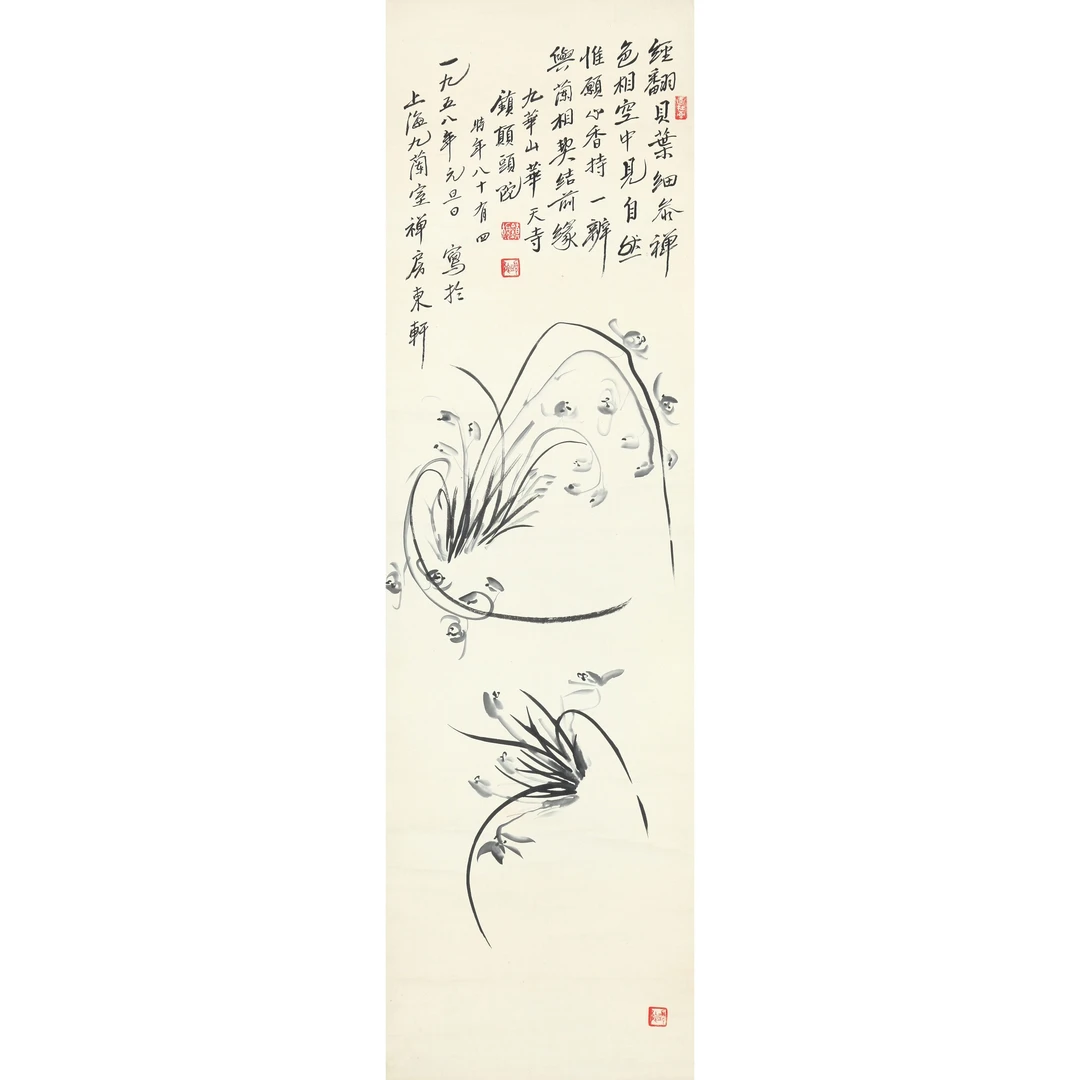 經翻貝葉細參禪
色相空中見自然
惟願心香持一瓣
與蘭相契結前緣
九華山華天寺
鎮顛頭陀
時年八十有四
一九五八年元旦日寫於
上海九蘭室禅房東軒